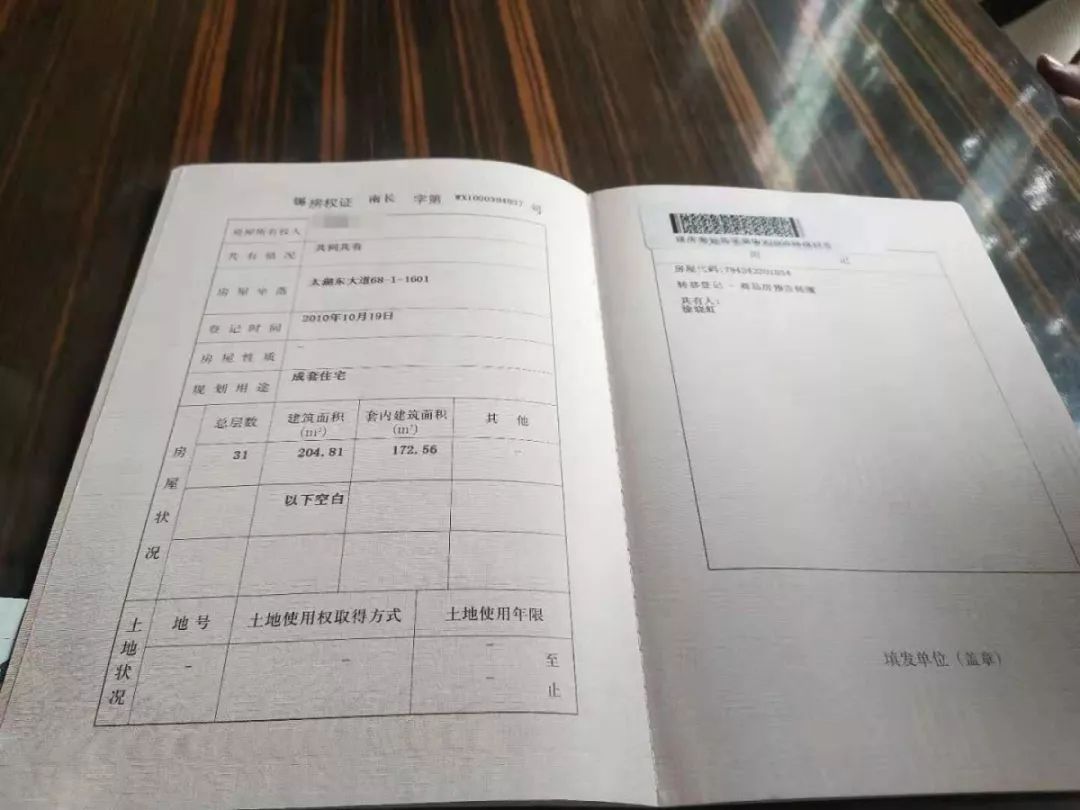 锡房权证 南长 字第 WX1000394937 号
房屋所有权人
共有情况 共同共有
房屋坐落 太湖东大道68-1-1601
登记时间 2010年10月19日
房屋性质 -
规划用途 成套住宅
房屋状况
总层数 建筑面积(m²) 套内建筑面积(m²) 其他
31 204.81 172.56 -
以下空白
土地状况
地号 土地使用权取得方式 土地使用年限
- - - 至
- 止
附记
房屋代码:794242201854
转移登记 - 商品房预告转现
共有人:
徐晓虹
填发单位(盖章)